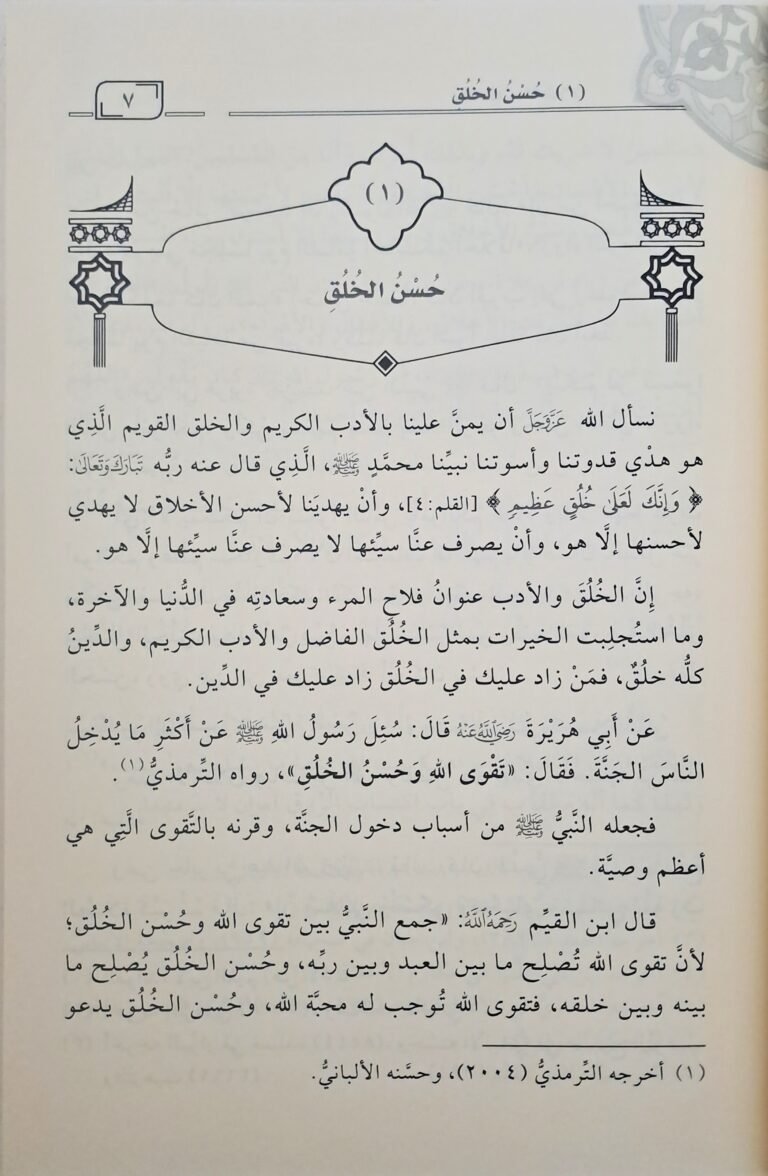 (١) حُسْنُ الخُلُقِ
٧
(١)
حُسْنُ الخُلُقِ
نسأل الله عَزَّوَجَلَّ أن يمنَّ علينا بالأدب الكريم والخلق القويم الَّذِي
هو هدْي قدوتنا وأسوتنا نبيِّنا محمَّدٍ ﷺ، الَّذِي قال عنه ربُّه تَبَارَكَ وَتَعَالَىٰ:
﴿ وَإِنَّكَ لَعَلَىٰ خُلُقٍ عَظِيمٍ ﴾ [القلم:٤]، وأنْ يهديَنا لأحسن الأخلاق لا يهدي
لأحسنها إلَّا هو، وأنْ يصرف عنَّا سيِّئها لا يصرف عنَّا سيِّئها إلَّا هو.
إِنَّ الخُلُقَ والأدب عنوانُ فلاحِ المرء وسعادتِه في الدُّنيا والآخرة،
وما استُجلِبت الخيرات بمثل الخُلُق الفاضل والأدب الكريم، والدِّينُ
كلُّه خلُقٌ، فمَنْ زاد عليك في الخُلُق زاد عليك في الدِّين.
عَنْ أَبِي هُرَيْرَةَ رَضِيَ اللَّهُ عَنْهُ قَالَ: سُئِلَ رَسُولُ اللهِ ﷺ عَنْ أَكْثَرِ مَا يُدْخِلُ
النَّاسَ الجَنَّةَ. فَقَالَ: «تَقْوَى اللهِ وَحُسْنُ الخُلُقِ»، رواه التِّرمذيُّ(١).
فجعله النَّبيُّ ﷺ من أسباب دخول الجنَّة، وقرنه بالتَّقوى الَّتِي هي
أعظم وصيَّة.
قال ابن القيِّم رَحِمَهُ اللَّهُ: «جمع النَّبيُّ بين تقوى الله وحُسْن الخُلُق؛
لأنَّ تقوى الله تُصْلِح ما بين العبد وبين ربِّه، وحُسْن الخُلُق يُصْلِح ما
بينه وبين خلقه، فتقوى الله تُوجب له محبَّة الله، وحُسْن الخُلُق يدعو
(١) أخرجه التِّرمذيُّ (٢٠٠٤)، وحسَّنه الألبانيُّ.